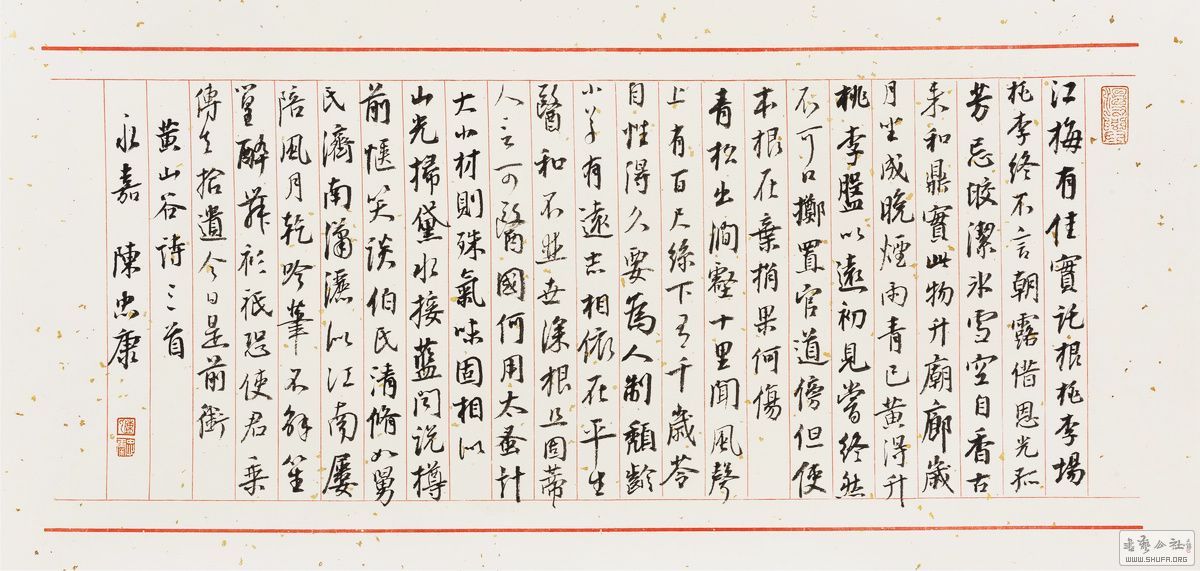 江梅有佳實託根桃李場
桃李終不言朝露借恩光孤
芳忌皎潔冰雪空自香古
來和鼎實此物升廟廊歲
月坐成晚煙雨青已黃得升
桃李盤以遠初見嘗終然
不可口擲置官道傍但使
本根在棄捐果何傷
青松出澗壑十里聞風聲
上有百尺絲下有千歲苓
自性得久要為人制頹齡
小草有遠志相依在平生
醫和不並世深根且固蒂
人言可醫國何用太蚤計
大小材則殊氣味固相似
山光掃黛水接藍聞說樽
前愜笑談伯氏清脩如舅
氏濟南瀟灑似江南屢
陪風月乾吟筆不解笙
簧醉舞衫祇恐使君乘
傳去拾遺今日是前銜
黃山谷詩三首
永嘉 陳忠康
書藝公社
WWW.SHUFA.ORG